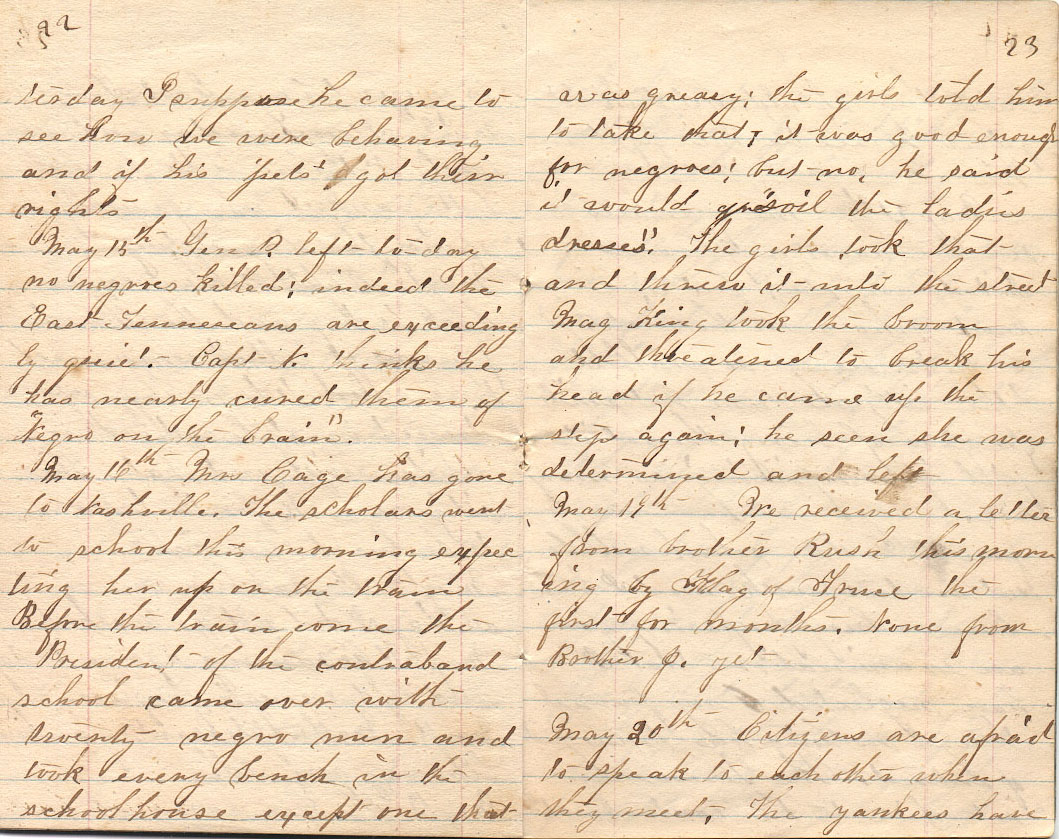 22
terday I suppose he came to
see how we were behaving
and if his "pets" got their
rights
May 15th Gen P. left to-day
no negroes killed; indeed the
East Tenneseans are exceeding
ly quiet. Capt N. thinks he
has nearly cured them of
"Negro on the brain".
May 16th Mrs Cage has gone
to Nashville. The scholars went
to school this morning expec
ting her up on the train
Before the train come the
President of the contraband
school came over with
twenty negro men and
took every bench in the
schoolhouse except one that
23
was greasy; the girls told him
to take that, it was good enough
for negroes; but no, he said
it would "soil the ladies
dresses". The girls took that
and threw it into the street
Mag King took the broom
and threatened to break his
head if he came up the
steps again; he seen she was
determined and left
May 19th We received a letter
from brother Rush this morn
ing by Flag of Truce the
first for months. None from
Brother J. yet
May 20th Citizens are afraid
to speak to each other when
they meet. The yankees have